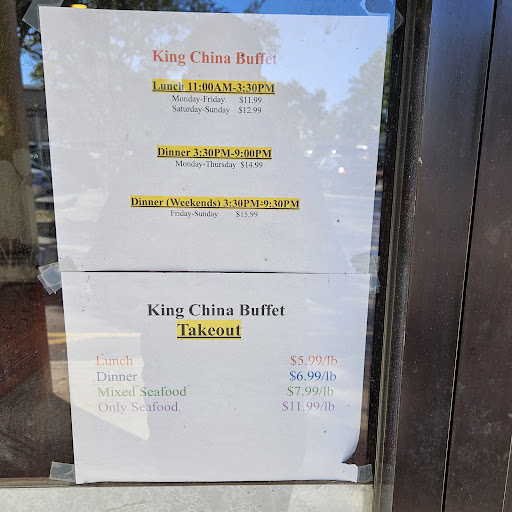 King China Buffet
Lunch 11:00AM-3:30PM
Monday-Friday. $11.99
Saturday-Sunday $12.99
Dinner 3:30PM-9:00PM
Monday-Thursday $14.99
Dinner (Weekends) 3:30PM-9:30PM
Friday-Sunday $15.99
King China Buffet
Takeout
Lunch $5.99/lb
Dinner $6.99/lb
Mixed Seafood $7.99/lb
Only Seafood. $11.99/lb